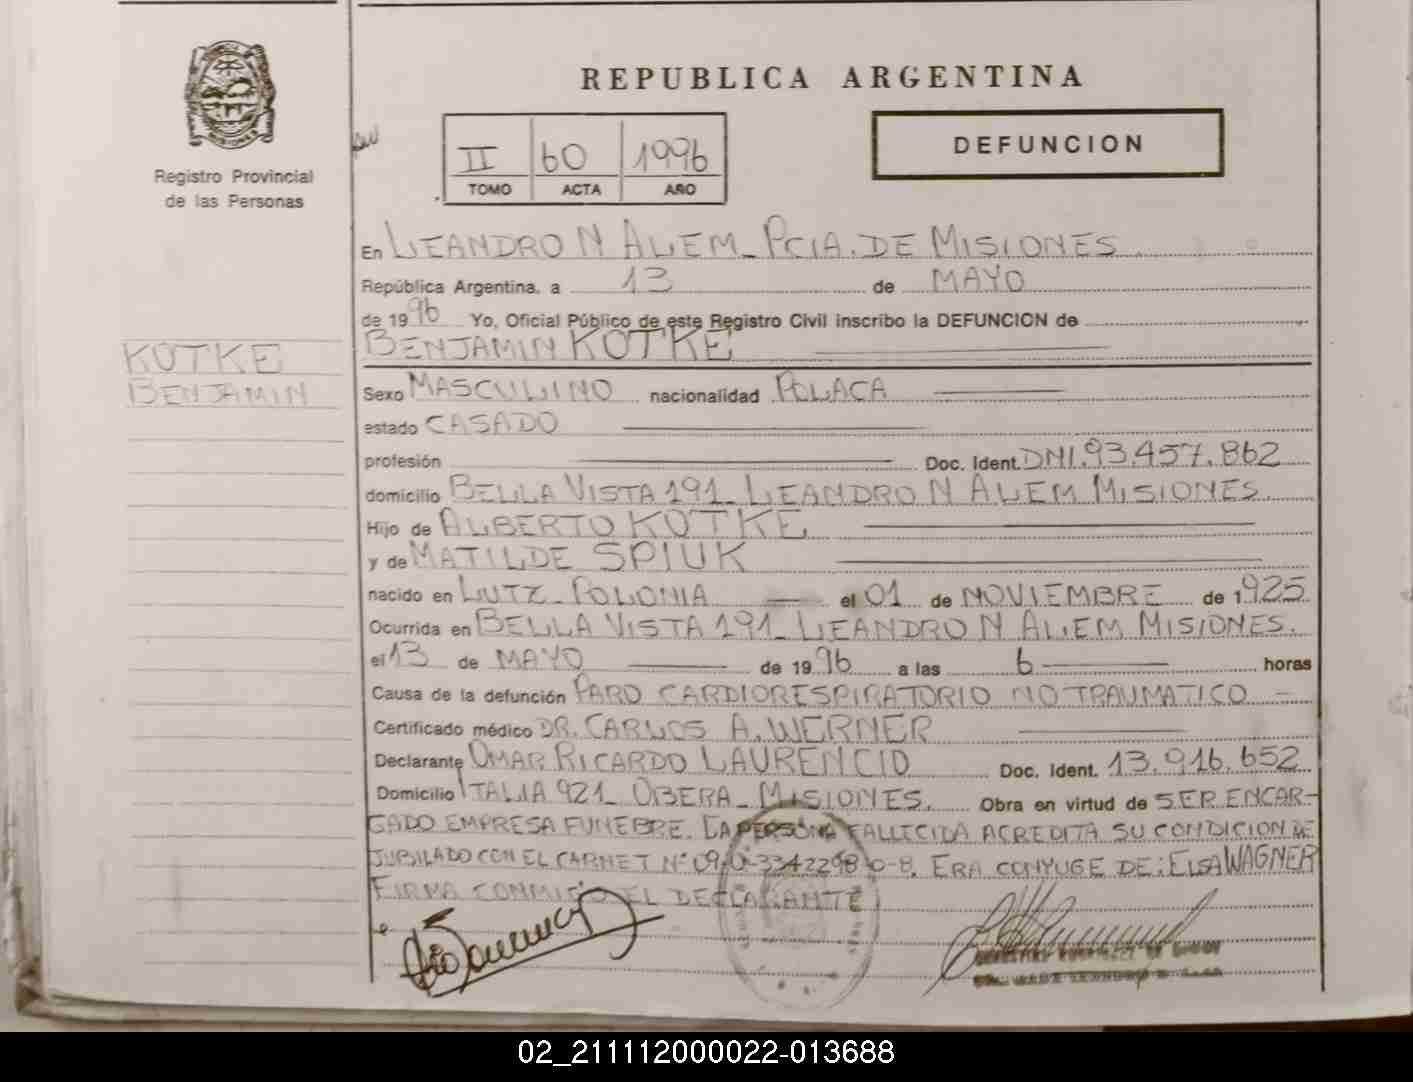 REPUBLICA ARGENTINA
DEFUNCION
II 60 1996
TOMO ACTA AÑO
MISIONES
Registro Provincial
de las Personas
KOTKE
BENJAMIN
En LEANDRO N ALEM - PCIA. DE MISIONES
República Argentina, a 13 de MAYO
de 1996 Yo, Oficial Público de este Registro Civil inscribo la DEFUNCION de
BENJAMIN KOTKE
Sexo MASCULINO nacionalidad POLACA
estado CASADO
profesión Doc. Ident. DNI. 93.457.862
domicilio BELLA VISTA 191 - LEANDRO N ALEM MISIONES
Hijo de ALBERTO KOTKE
y de MATILDE SPIUK
nacido en LUTZ - POLONIA el 01 de NOVIEMBRE de 1925
Ocurrida en BELLA VISTA 191 - LEANDRO N ALEM MISIONES.
el 13 de MAYO de 1996 a las 6 horas
Causa de la defunción PARO CARDIORESPIRATORIO NO TRAUMATICO -
Certificado médico DR. CARLOS A. WERNER
Declarante OMAR RICARDO LAURENCIO Doc. Ident. 13.916.652
Domicilio ITALIA 921 - OBERA - MISIONES. Obra en virtud de SER ENCAR-
GADO EMPRESA FUNEBRE. LA PERSONA FALLECIDA ACREDITA SU CONDICION DE
JUBILADO CON EL CARNET Nº 09-0-3342298-0-8. ERA CONYUGE DE: ELSA WAGNER
FIRMA CONMIGO EL DECLARANTE
02_211112000022-013688